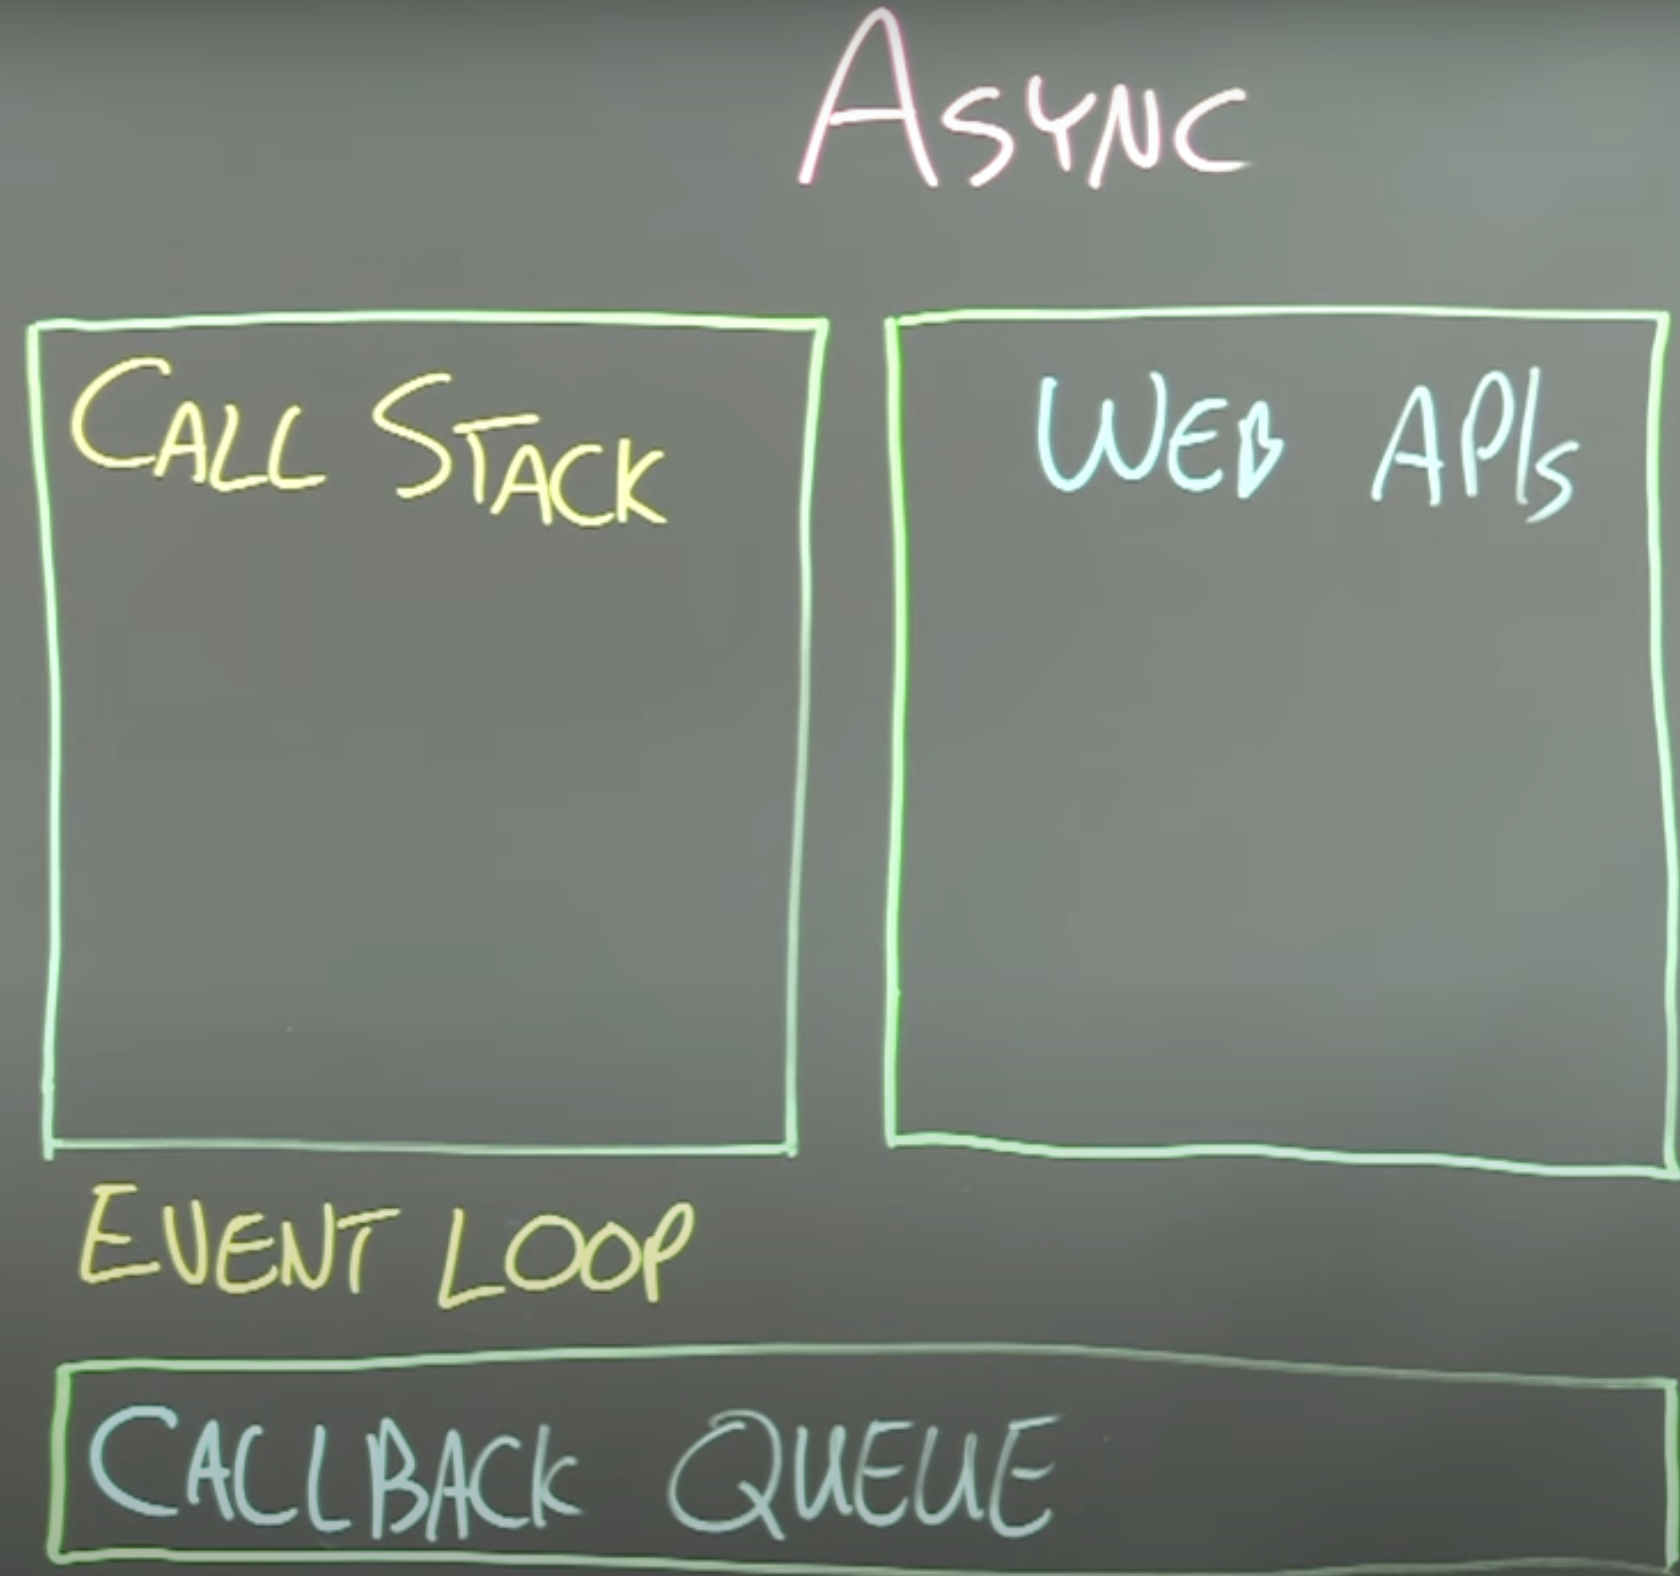 ASYNC
CALL STACK
WEB APIs
EVENT LOOP
CALLBACK QUEUE